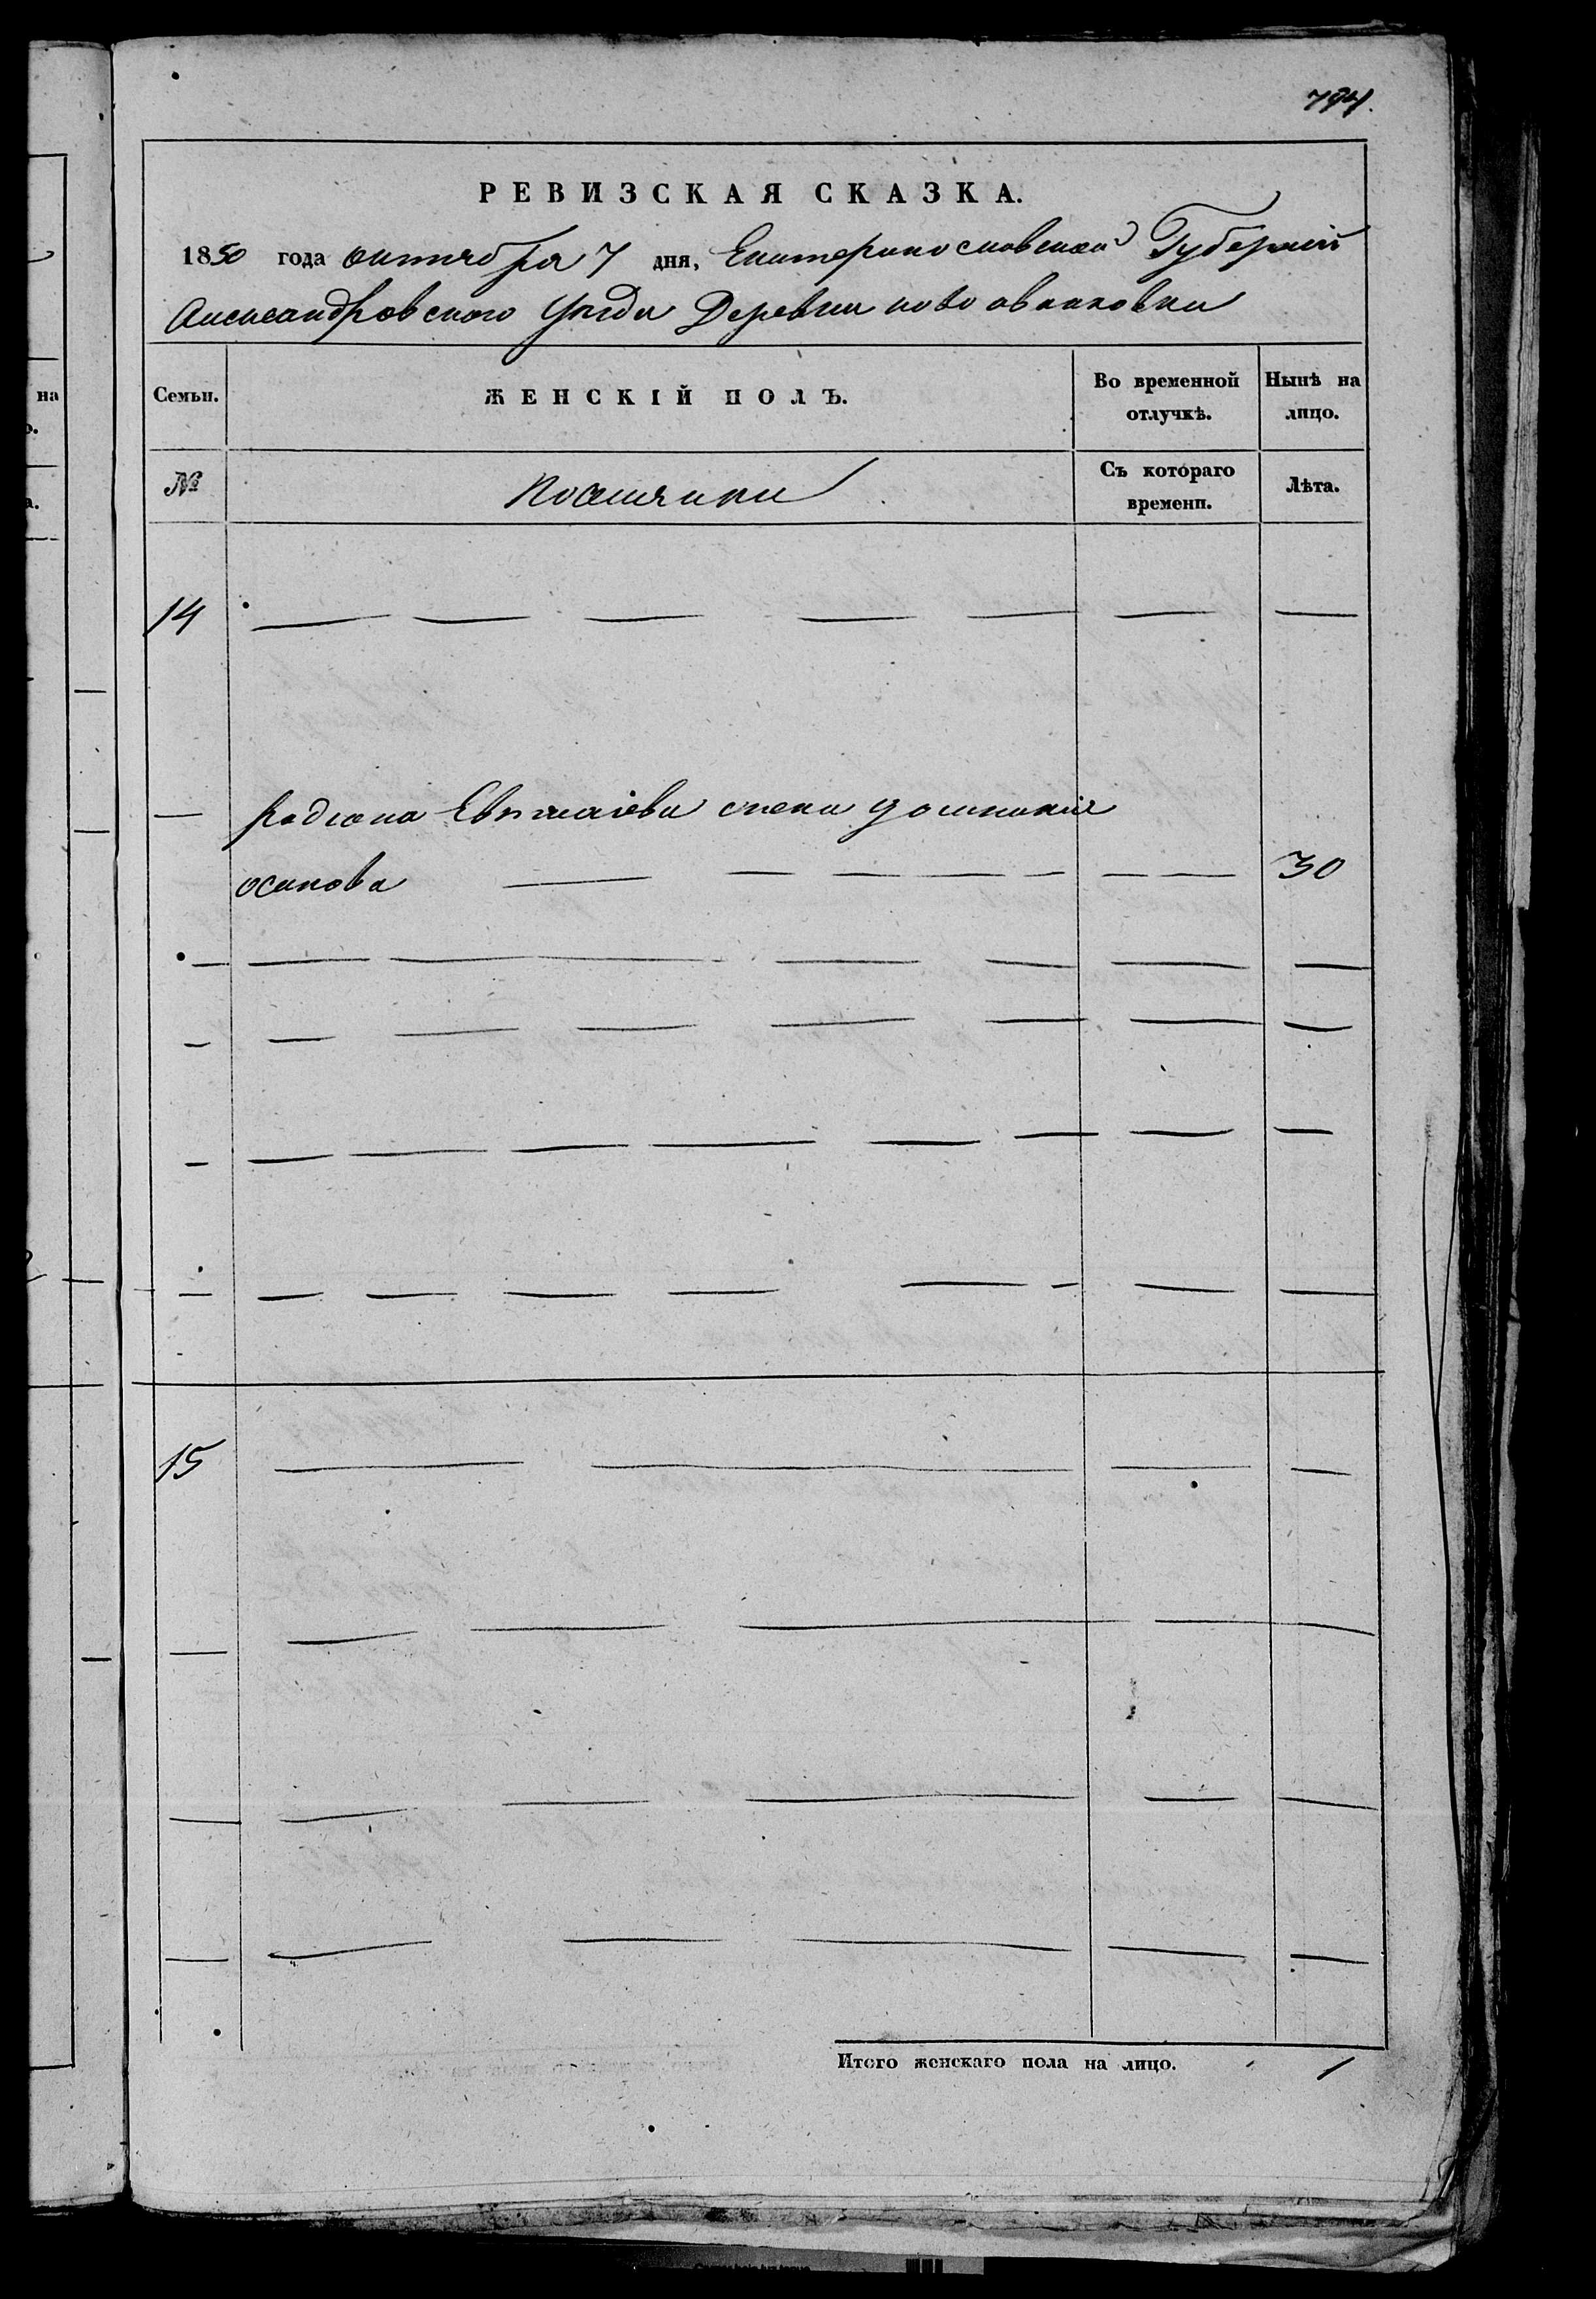 РЕВИЗСКАЯ СКАЗКА.
1850 года октября 7 дня, Екатеринославской Губернии
Александровского уезда Деревни ново
Семьи. ЖЕНСКІЙ ПОЛЪ. Во временной отлучкѣ. Нынѣ на лицо.
№ Съ котораго времени. Лѣта.
14
Радиона жена
осипова 30
15
Итого женскаго пола на лицо. 1
на